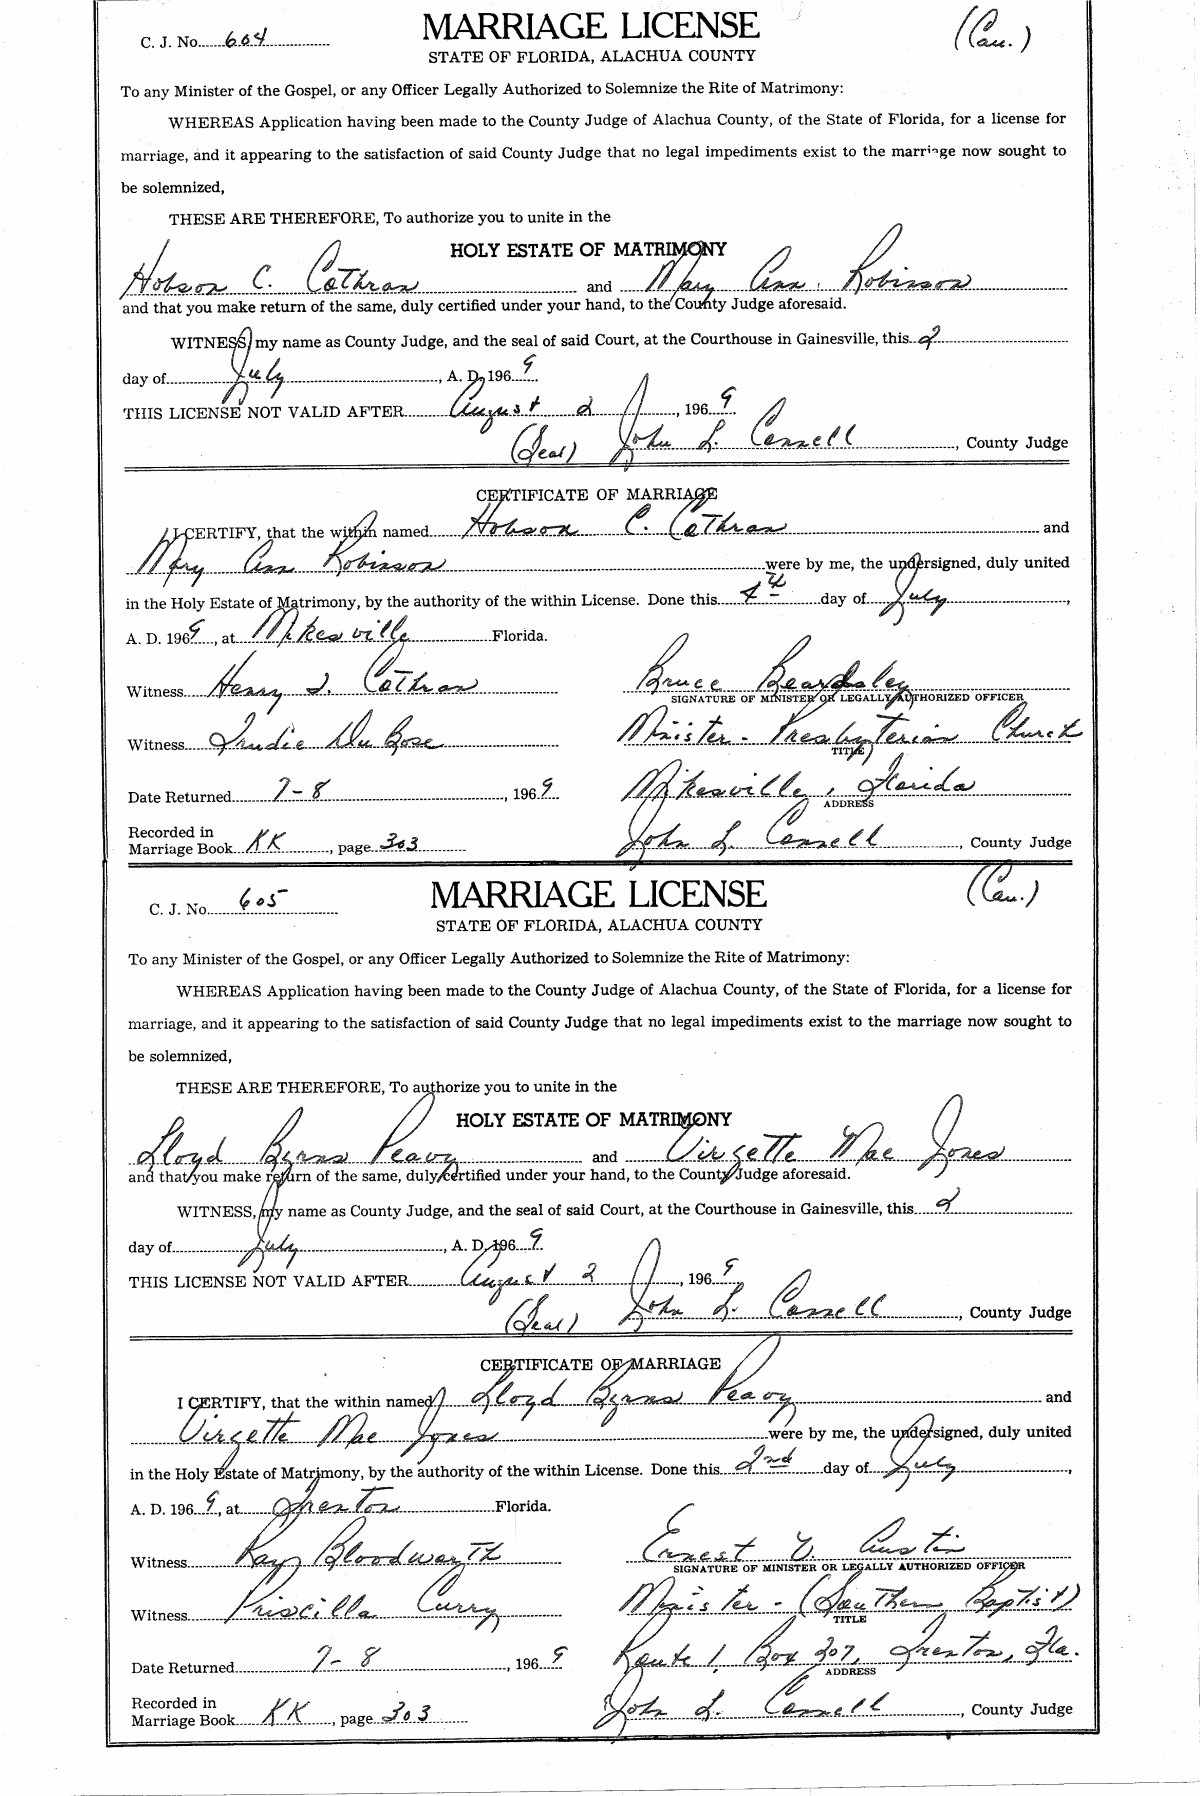 C. J. No. 604 MARRIAGE LICENSE (Cau.)
STATE OF FLORIDA, ALACHUA COUNTY
To any Minister of the Gospel, or any Officer Legally Authorized to Solemnize the Rite of Matrimony:
WHEREAS Application having been made to the County Judge of Alachua County, of the State of Florida, for a license for
marriage, and it appearing to the satisfaction of said County Judge that no legal impediments exist to the marriage now sought to
be solemnized,
THESE ARE THEREFORE, To authorize you to unite in the
HOLY ESTATE OF MATRIMONY
Hobson C. Cothran and Mary Ann Robinson
and that you make return of the same, duly certified under your hand, to the County Judge aforesaid.
WITNESS, my name as County Judge, and the seal of said Court, at the Courthouse in Gainesville, this 2
day of July, A. D. 1969
THIS LICENSE NOT VALID AFTER August 2, 1969
(Seal) John L. Connell, County Judge
CERTIFICATE OF MARRIAGE
I CERTIFY, that the within named Hobson C. Cothran and
Mary Ann Robinson were by me, the undersigned, duly united
in the Holy Estate of Matrimony, by the authority of the within License. Done this 4th day of July,
A. D. 1969, at Mikesville Florida.
Witness Henry I. Cothran Bruce Beardsley
SIGNATURE OF MINISTER OR LEGALLY AUTHORIZED OFFICER
Witness Trudie DuBose Minister - Presbyterian Church
TITLE
Date Returned 7-8, 1969 Mikesville, Florida
ADDRESS
Recorded in
Marriage Book KK, page 303 John L. Connell, County Judge
C. J. No. 605 MARRIAGE LICENSE (Cau.)
STATE OF FLORIDA, ALACHUA COUNTY
To any Minister of the Gospel, or any Officer Legally Authorized to Solemnize the Rite of Matrimony:
WHEREAS Application having been made to the County Judge of Alachua County, of the State of Florida, for a license for
marriage, and it appearing to the satisfaction of said County Judge that no legal impediments exist to the marriage now sought to
be solemnized,
THESE ARE THEREFORE, To authorize you to unite in the
HOLY ESTATE OF MATRIMONY
Lloyd Byrns Peavy and Virgette Mae Jones
and that you make return of the same, duly certified under your hand, to the County Judge aforesaid.
WITNESS, my name as County Judge, and the seal of said Court, at the Courthouse in Gainesville, this 2
day of July, A. D. 1969
THIS LICENSE NOT VALID AFTER August 2, 1969
(Seal) John L. Connell, County Judge
CERTIFICATE OF MARRIAGE
I CERTIFY, that the within named Lloyd Byrns Peavy and
Virgette Mae Jones were by me, the undersigned, duly united
in the Holy Estate of Matrimony, by the authority of the within License. Done this 2nd day of July,
A. D. 1969, at Trenton Florida.
Witness Kay Bloodworth Ernest V. Austin
SIGNATURE OF MINISTER OR LEGALLY AUTHORIZED OFFICER
Witness Priscilla Curry Minister - (Southern Baptist)
TITLE
Date Returned 7-8, 1969 Route 1, Box 207, Trenton, Fla.
ADDRESS
Recorded in
Marriage Book KK, page 303 John L. Connell, County Judge